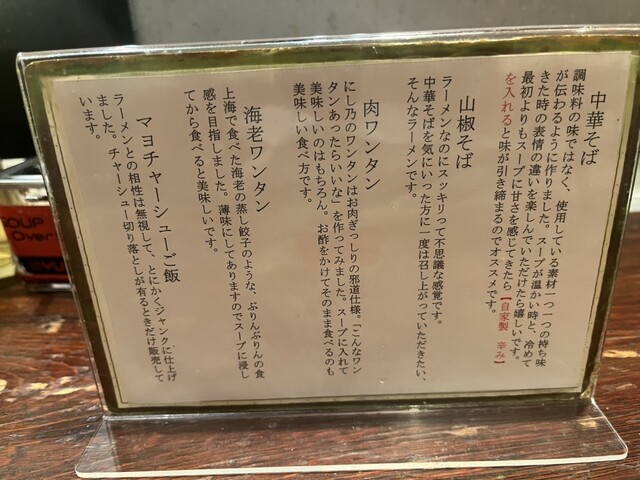 中華そば
調味料の味ではなく、使用している素材一つ一つの持ち味
が伝わるように作りました。スープが温かい時と、冷めて
きた時の表情の違いを楽しんでいただけたら嬉しいです。
最初よりもスープに甘さを感じてきたら【自家製 辛み】
を入れると味が引き締まるのでオススメです。
山椒そば
ラーメンなのにスッキリって不思議な感覚です。
中華そばを気にいった方に一度は召し上がっていただきたい、
そんなラーメンです。
肉ワンタン
にし乃のワンタンはお肉ぎっしりの邪道仕様。「こんなワン
タンあったらいいな」を作ってみました。スープに入れて
美味しいのはもちろん。お酢をかけてそのまま食べるのも
美味しい食べ方です。
海老ワンタン
上海で食べた海老の蒸し餃子のような、ぷりんぷりんの食
感を目指しました。薄味にしてありますのでスープに浸し
てから食べると美味しいです。
マヨチャーシューご飯
ラーメンとの相性は無視して、とにかくジャンクに仕上げ
ました。チャーシュー切り落としが有るときだけ販売して
います。
SOUP
Over